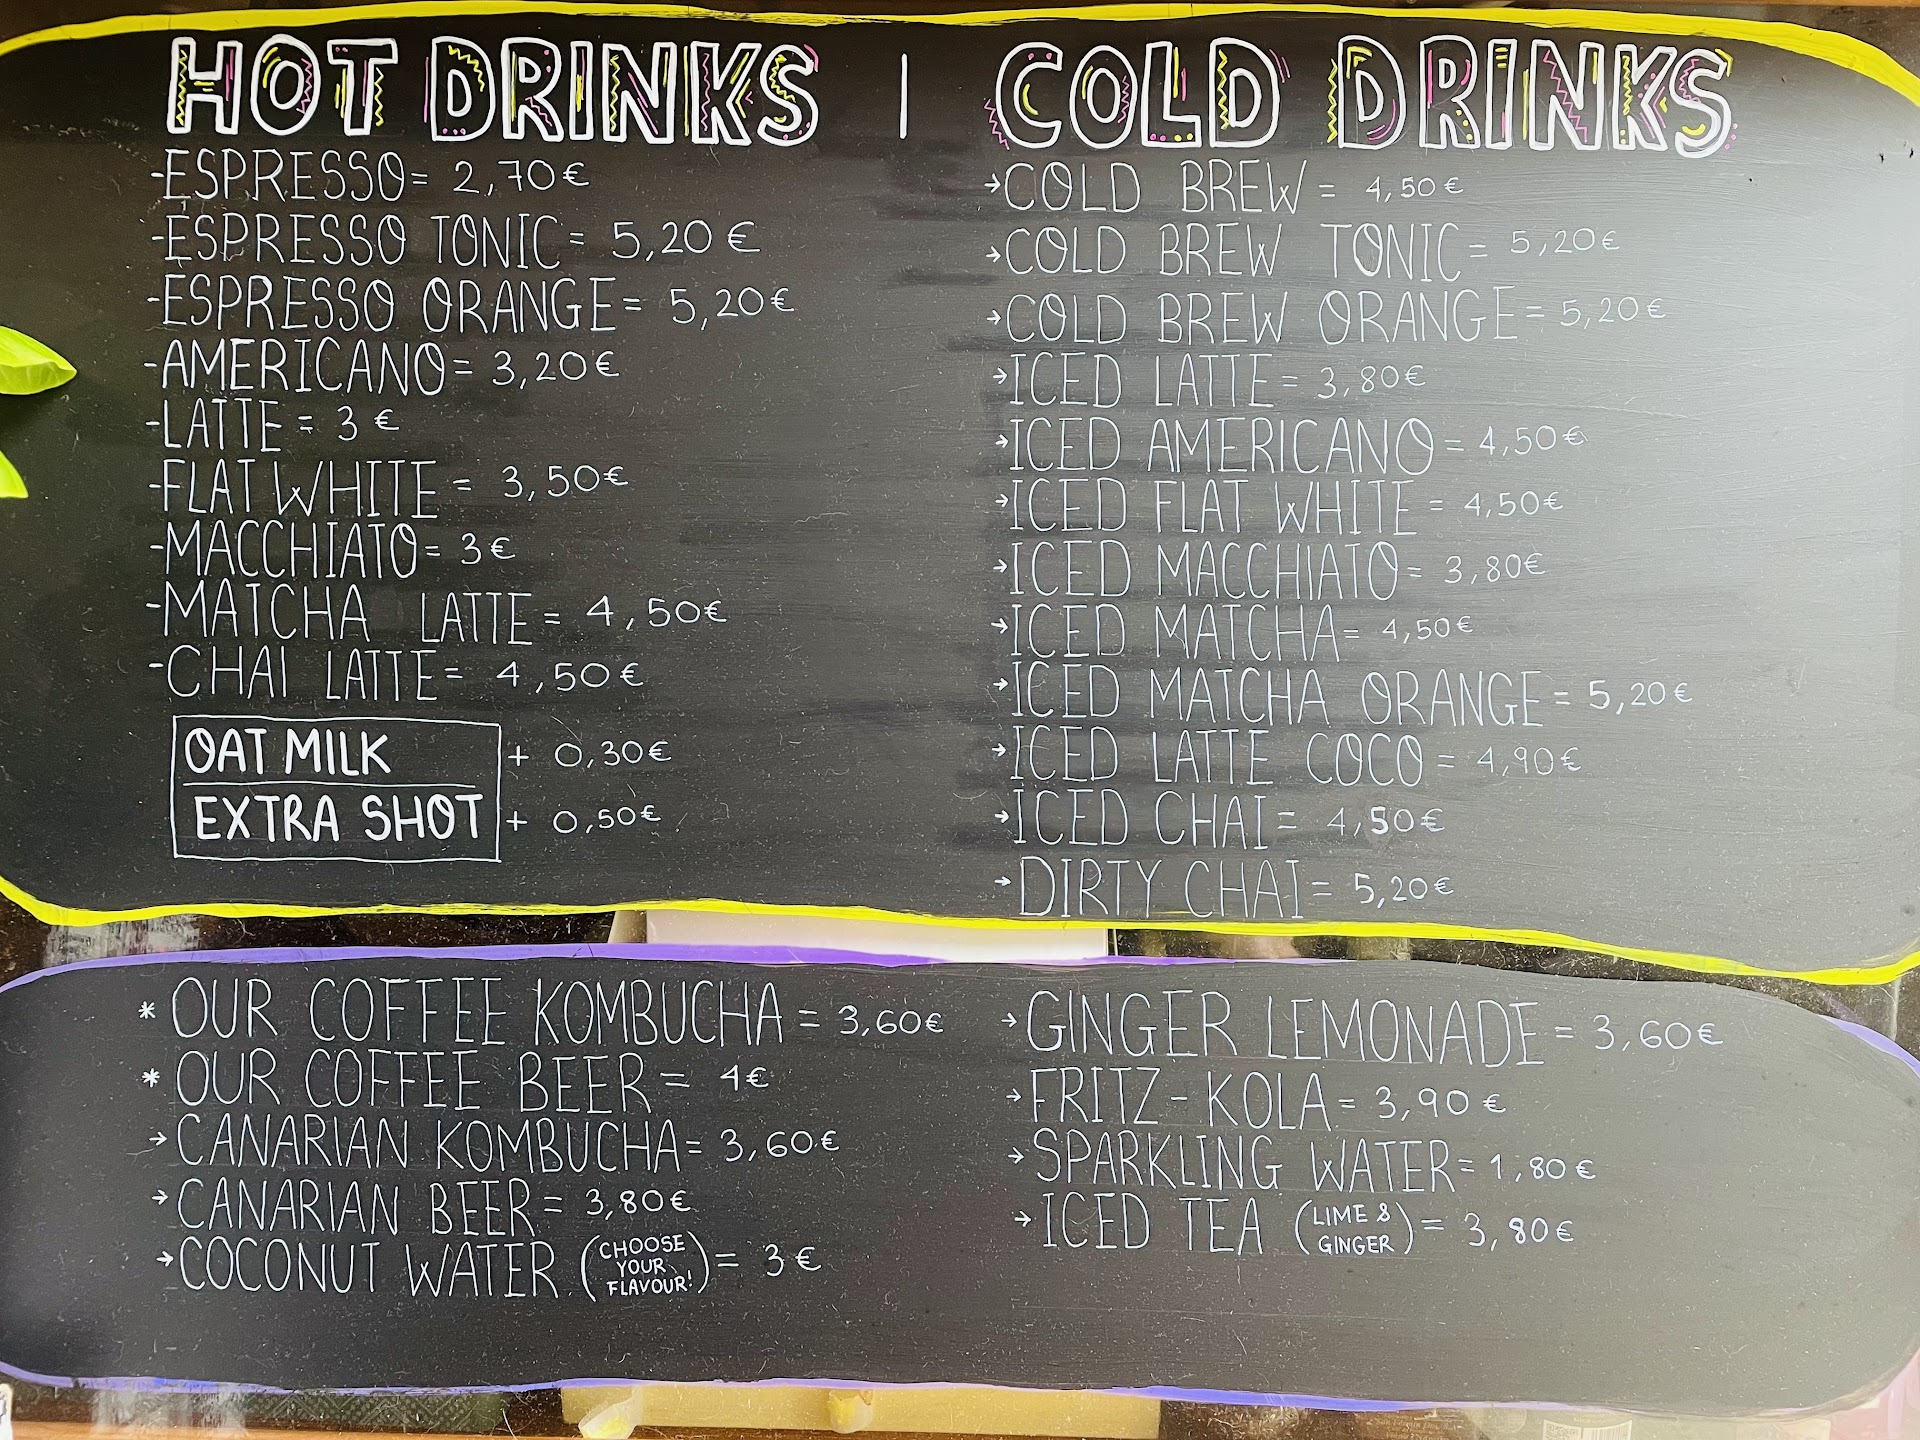 HOT DRINKS | COLD DRINKS
-ESPRESSO= 2,70€
-ESPRESSO TONIC= 5,20€
-ESPRESSO ORANGE= 5,20€
-AMERICANO= 3,20€
-LATTE= 3€
-FLAT WHITE= 3,50€
-MACCHIATO= 3€
-MATCHA LATTE= 4,50€
-CHAI LATTE= 4,50€
OAT MILK + 0,30€
EXTRA SHOT + 0,50€
→COLD BREW= 4,50€
→COLD BREW TONIC= 5,20€
→COLD BREW ORANGE= 5,20€
→ICED LATTE= 3,80€
→ICED AMERICANO= 4,50€
→ICED FLAT WHITE= 4,50€
→ICED MACCHIATO= 3,80€
→ICED MATCHA= 4,50€
→ICED MATCHA ORANGE= 5,20€
→ICED LATTE COCO= 4,90€
→ICED CHAI= 4,50€
→DIRTY CHAI= 5,20€
* OUR COFFEE KOMBUCHA= 3,60€
* OUR COFFEE BEER= 4€
→CANARIAN KOMBUCHA= 3,60€
→CANARIAN BEER= 3,80€
→COCONUT WATER (CHOOSE YOUR FLAVOUR!)= 3€
→GINGER LEMONADE= 3,60€
→FRITZ-KOLA= 3,90€
→SPARKLING WATER= 1,80€
→ICED TEA (LIME & GINGER)= 3,80€